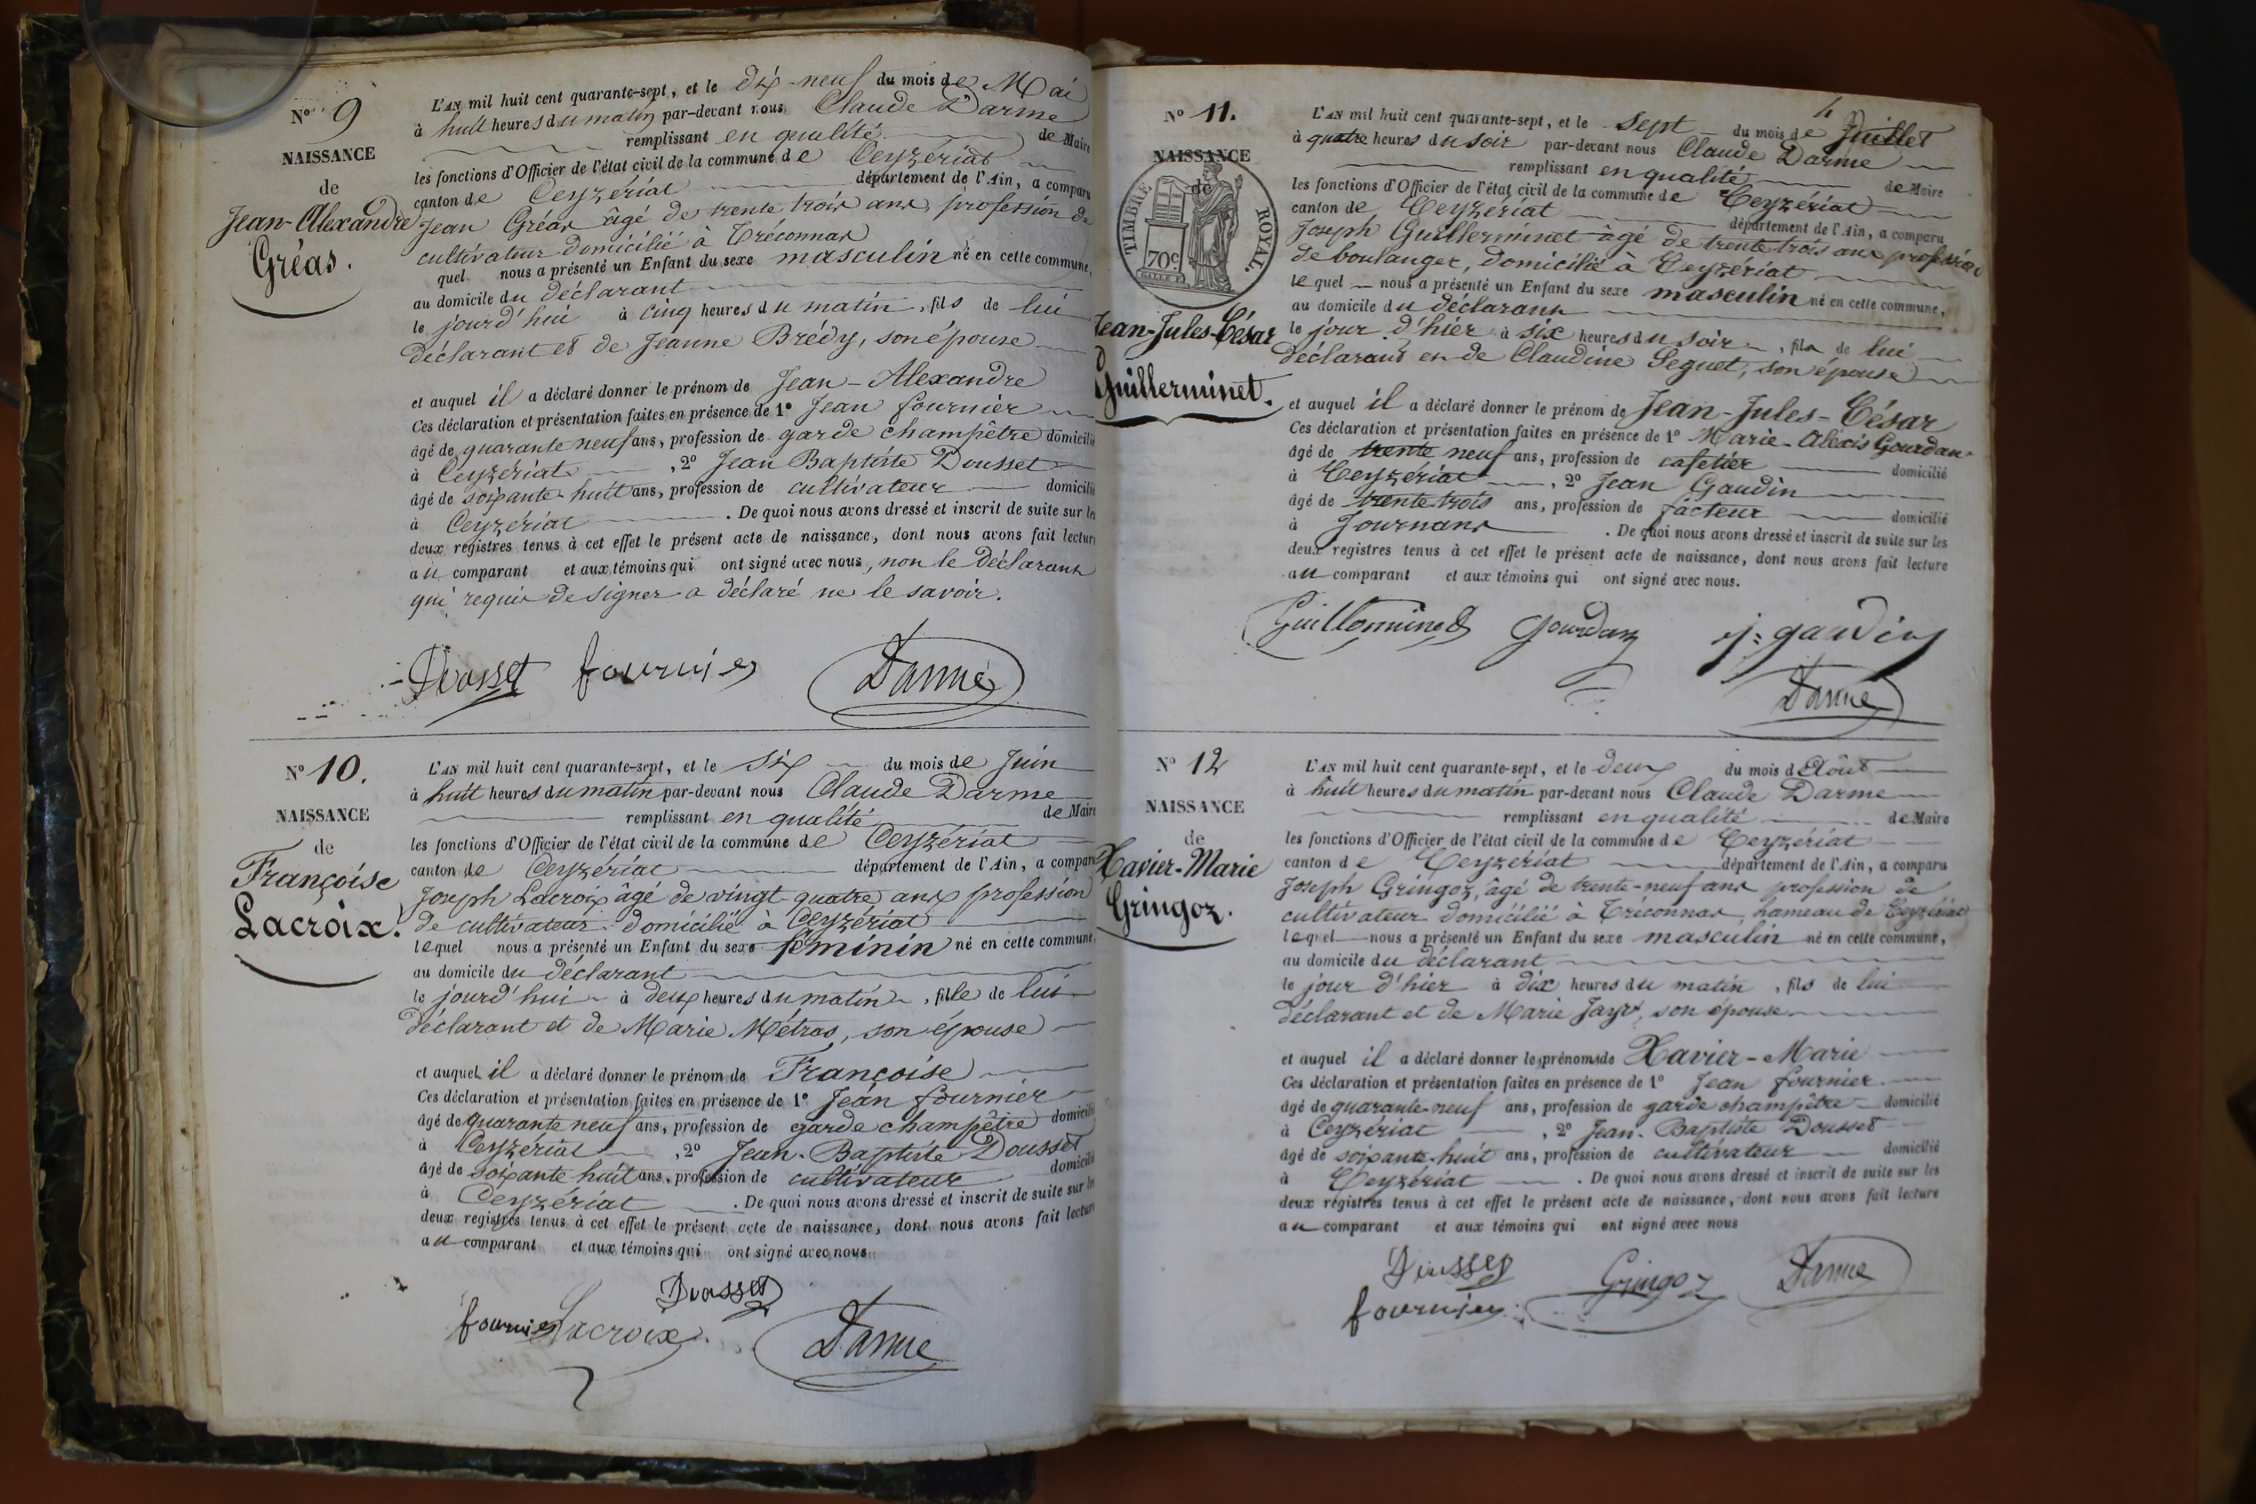 N° 9
NAISSANCE
de
Jean-Alexandre
Gréas.
L'AN mil huit cent quarante-sept, et le dix-neuf du mois de Mai
à huit heures du matin par-devant nous Claude Darme
remplissant en qualité de Maire
les fonctions d'Officier de l'état civil de la commune de Ceyzériat
canton de Ceyzériat département de l'Ain, a comparu
Jean Gréas âgé de trente trois ans, profession de
cultivateur domicilié à Tréconnas
quel nous a présenté un Enfant du sexe masculin né en cette commune,
au domicile du déclarant
le jourd'hui à cinq heures du matin, fils de lui
déclarant et de Jeanne Brédy, son épouse
et auquel il a déclaré donner le prénom de Jean-Alexandre
Ces déclaration et présentation faites en présence de 1° Jean fournier
âgé de quarante neuf ans, profession de garde champêtre domicilié
à Ceyzériat, 2° Jean Baptiste Dousset
âgé de soixante huit ans, profession de cultivateur domicilié
à Ceyzériat. De quoi nous avons dressé et inscrit de suite sur les
deux registres tenus à cet effet le présent acte de naissance, dont nous avons fait lecture
au comparant et aux témoins qui ont signé avec nous, non le déclarant
qui requis de signer a déclaré ne le savoir.
Dousset fournier Darme
N° 10.
NAISSANCE
de
Françoise
Lacroix.
L'AN mil huit cent quarante-sept, et le six du mois de Juin
à huit heures du matin par-devant nous Claude Darme
remplissant en qualité de Maire
les fonctions d'Officier de l'état civil de la commune de Ceyzériat
canton de Ceyzériat département de l'Ain, a comparu
Joseph Lacroix âgé de vingt-quatre ans profession
de cultivateur domicilié à Ceyzériat
lequel nous a présenté un Enfant du sexe féminin né en cette commune,
au domicile du déclarant
le jourd'hui à deux heures du matin, fille de lui
déclarant et de Marie Métras, son épouse
et auquel il a déclaré donner le prénom de Françoise
Ces déclaration et présentation faites en présence de 1° Jean fournier
âgé de quarante neuf ans, profession de garde champêtre domicilié
à Ceyzériat, 2° Jean-Baptiste Dousset
âgé de soixante huit ans, profession de cultivateur domicilié
à Ceyzériat. De quoi nous avons dressé et inscrit de suite sur les
deux registres tenus à cet effet le présent acte de naissance, dont nous avons fait lecture
au comparant et aux témoins qui ont signé avec nous.
Dousset
fournier Lacroix Darme
4
N° 11.
NAISSANCE
de
TIMBRE ROYAL.
70c
Jean-Jules-César
Guillerminet.
L'AN mil huit cent quarante-sept, et le sept du mois de Juillet
à quatre heures du soir par-devant nous Claude Darme
remplissant en qualité de Maire
les fonctions d'Officier de l'état civil de la commune de Ceyzériat
canton de Ceyzériat département de l'Ain, a comparu
Joseph Guillerminet âgé de trente trois ans profession
de boulanger, domicilié à Ceyzériat
lequel nous a présenté un Enfant du sexe masculin né en cette commune,
au domicile du déclarant
le jour d'hier à six heures du soir, fils de lui
déclarant et de Claudine Seguet, son épouse
et auquel il a déclaré donner le prénom de Jean-Jules-César
Ces déclaration et présentation faites en présence de 1° Marie-Alexis Gourdan
âgé de trente neuf ans, profession de cafetier domicilié
à Ceyzériat, 2° Jean Gaudin
âgé de trente trois ans, profession de facteur domicilié
à Journans. De quoi nous avons dressé et inscrit de suite sur les
deux registres tenus à cet effet le présent acte de naissance, dont nous avons fait lecture
au comparant et aux témoins qui ont signé avec nous.
Guillerminet Gourdan j: gaudin
Darme
N° 12
NAISSANCE
de
Xavier-Marie
Gringoz.
L'AN mil huit cent quarante-sept, et le deux du mois d'Août
à huit heures du matin par-devant nous Claude Darme
remplissant en qualité de Maire
les fonctions d'Officier de l'état civil de la commune de Ceyzériat
canton de Ceyzériat département de l'Ain, a comparu
Joseph Gringoz, âgé de trente-neuf ans profession de
cultivateur domicilié à Tréconnas, hameau de Ceyzériat
lequel nous a présenté un Enfant du sexe masculin né en cette commune,
au domicile du déclarant
le jour d'hier à dix heures du matin, fils de lui
déclarant et de Marie Jayr, son épouse
et auquel il a déclaré donner les prénoms de Xavier-Marie
Ces déclaration et présentation faites en présence de 1° Jean fournier
âgé de quarante-neuf ans, profession de garde champêtre domicilié
à Ceyzériat, 2° Jean-Baptiste Dousset
âgé de soixante-huit ans, profession de cultivateur domicilié
à Ceyzériat. De quoi nous avons dressé et inscrit de suite sur les
deux registres tenus à cet effet le présent acte de naissance, dont nous avons fait lecture
au comparant et aux témoins qui ont signé avec nous
Dousset Gringoz Darme
fournier